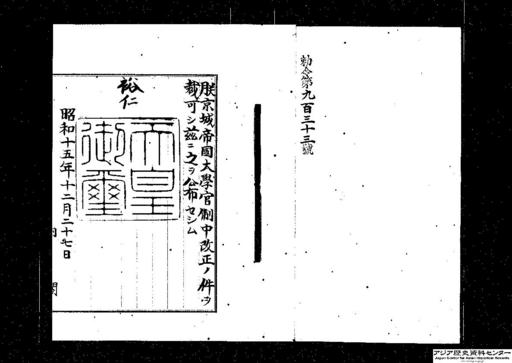 勅令第九百三十三號
朕京城帝國大學官制中改正ノ件ヲ
裁可シ茲ニ之ヲ公布セシム
裕仁
天皇
御璽
昭和十五年十二月二十七日
アジア歴史資料センター
Japan Center for Asian Historical Records